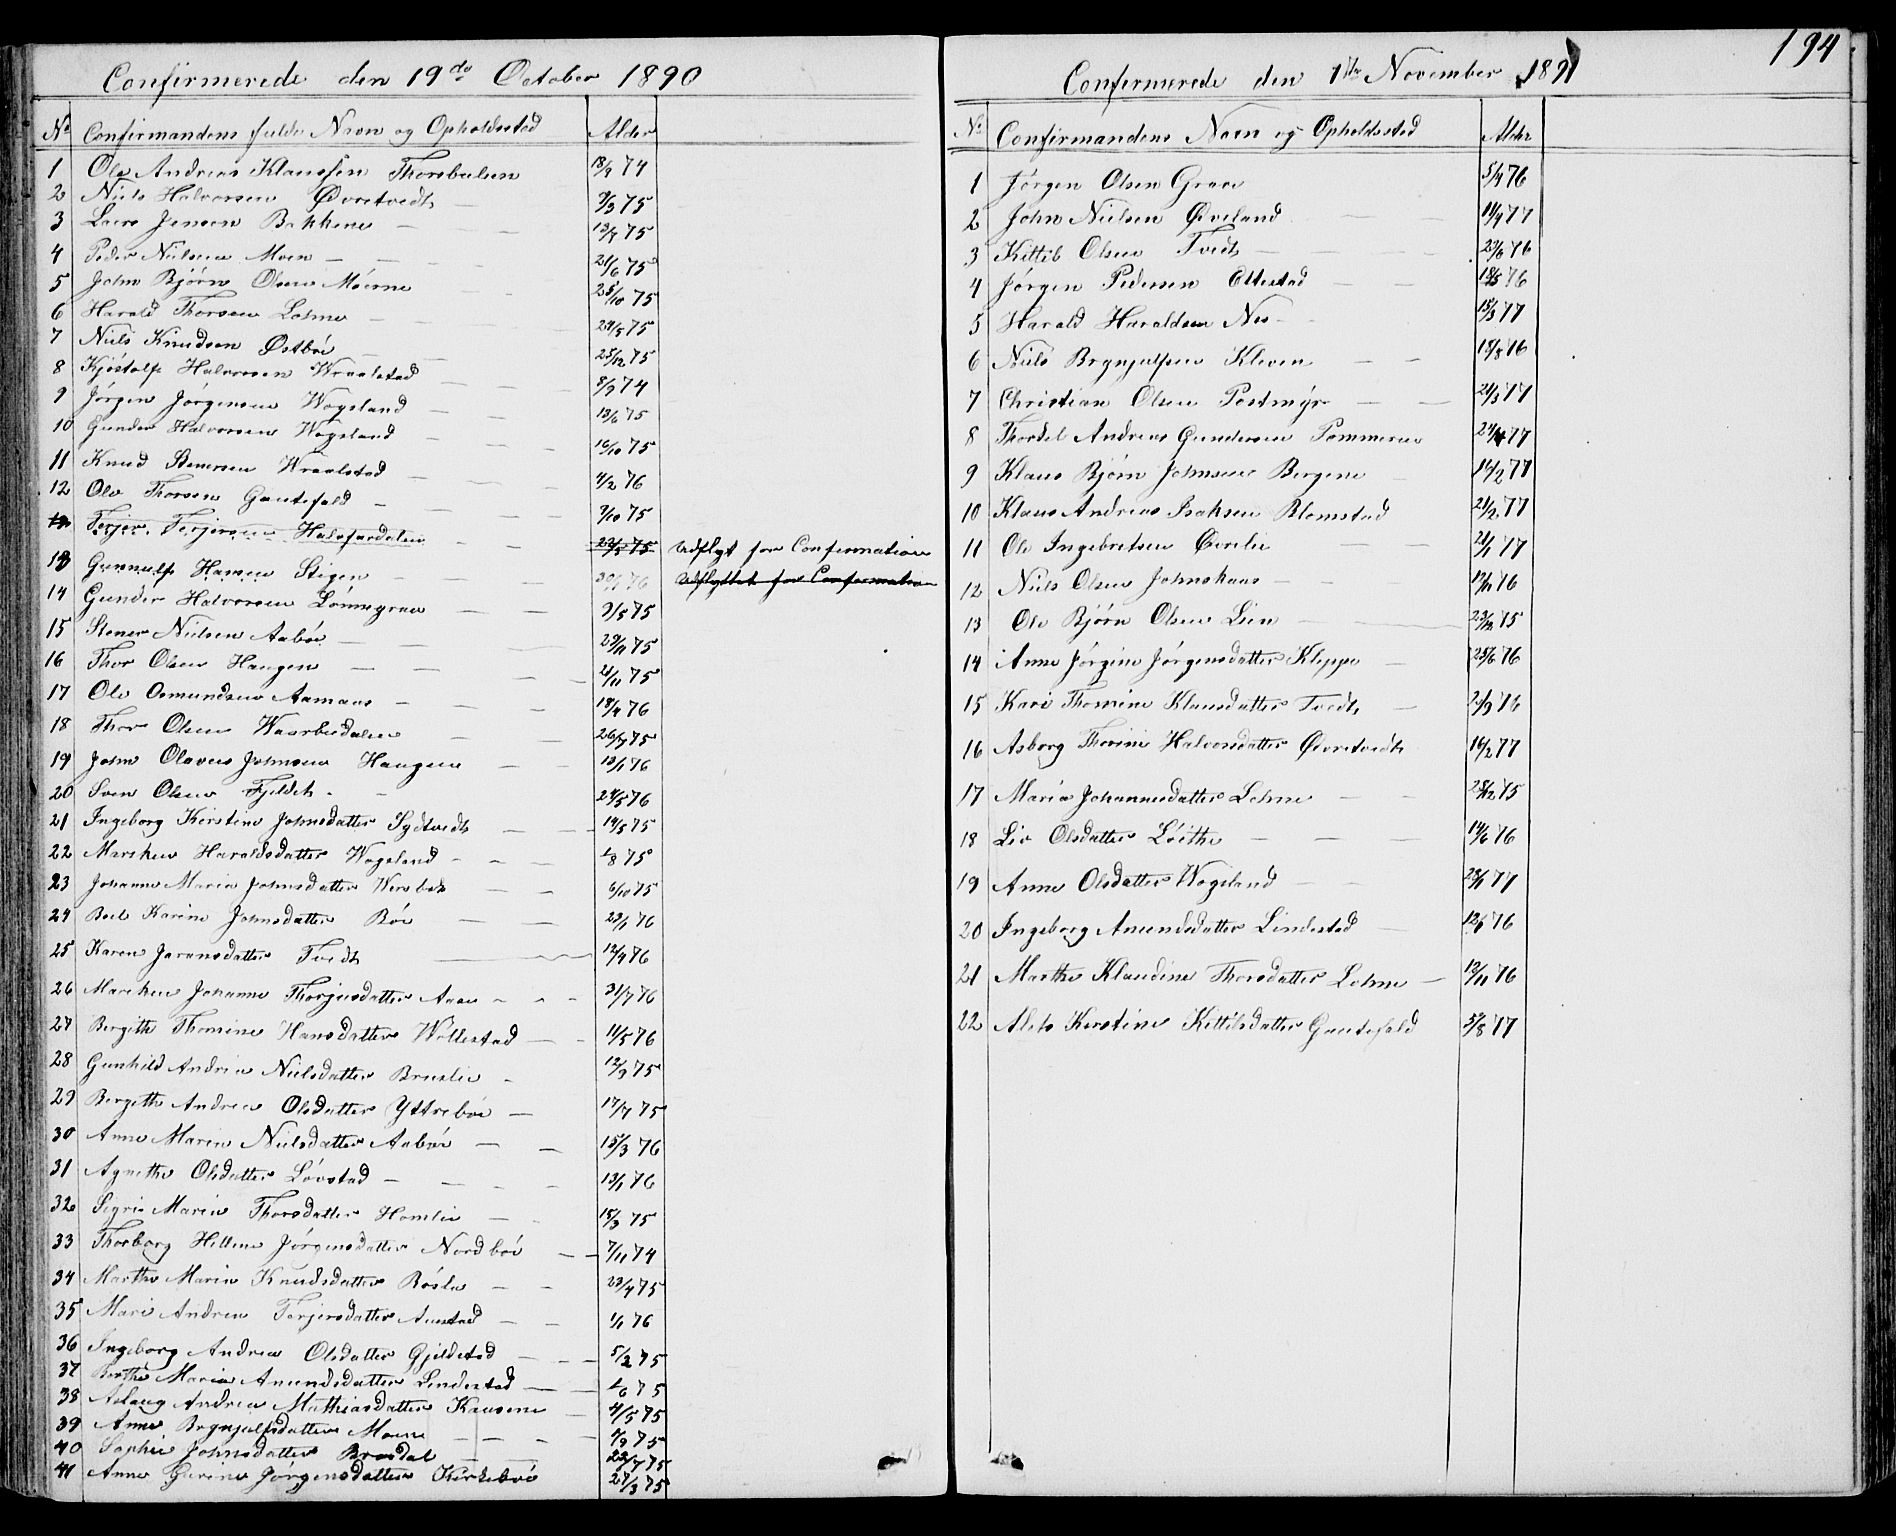 194
Confirmerede den 19de October 1890
No Confirmandens fulde Navn og Opholdssted Alder
1 Ole Andreas Klaussen Thorsbulien 74
2 Niels Halvorsen Øvretvedt 9/3 75
3 Lars Jensen Bakkene 75
4 Peder Nielsen Moen 21/6 75
5 John Bjørn Olsen Moerne 25/10 75
6 Harald Thorsen Lohne 24/5 75
7 Niels Knudsen Østbøe 25/12 75
8 Kjøstolf Halvorsen Wraalstad 8/9 74
9 Jørgen Jørgensen Wogsland 13/6 75
10 Gunder Halvorsen Wogsland 16/10 75
11 Knud Stenersen Wraalstad 4/2 76
12 Ole Thorsen Gautefald 7/10 75
Terjer Terjersen Halsfardalen 75 Udflyt før Confirmation
13 Gunnulf Hansen Stigen 76 Udflyttet før Confirmation
14 Gunder Halvorsen Lønnegrav 9/5 75
15 Stener Nielsen Aabøe 29/11 75
16 Thor Olsen Haugen 21/11 75
17 Ole Osmundsen Aamaas 18/4 76
18 Thor Olsen 26/7 75
19 John Olavus Johnsen Haugen 13/1 76
20 Sven Olsen Fjeldet 24/5 76
21 Ingeborg Kirstine Johnsdatter Sydtvedt 14/5 75
22 Marihen Haraldsdatter Wogsland 1/8 75
23 Johanne Maria Johnsdatter 6/10 75
24 Karine Johnsdatter Bøe 23/1 76
25 Karen Jaransdatter Tvedt 12/4 76
26 Marihen Johanne Thorjusdatter Aase 31/7 76
27 Bergith Thomine Hansdatter Wollestad 11/5 76
28 Gunhild Andrea Nielsdatter Bruslie 12/9 75
29 Bergithe Andrea Olsdatter Yttrebøe 17/7 75
30 Anne Maria Nielsdatter Aabøe 15/3 76
31 Agnethe Olsdatter Løvstad 13/1 76
32 Sigri Marie Thorsdatter Homlie 15/3 75
33 Thorborg Hellene Jørgensdatter Nordbøe 7/11 74
34 Marthe Marie Knudsdatter 23/4 75
35 Mari Andrea Terjersdatter 1/1 76
36 Ingeborg Andrea Olsdatter Gjeldstad 5/2 75
37 Berthe Maria Amundsdatter Lindestad 1/6 75
38 Aslaug Andrea Mathiasdatter Kausene 4/5 75
39 Anne Brynjulfsdatter Moen 4/9 75
40 Sophie Johnsdatter Brosdal 22/7 75
41 Anne Gurine Jørgensdatter Kirkebøe 27/3 75
Confirmerede den 1ste November 1891
No Confirmandens Navn og Opholdssted Alder
1 Jørgen Olsen Grave 5/4 76
2 John Nielsen Øveland 77
3 Kittil Olsen Tvedt 76
4 Jørgen Pedersen Ettestad 76
5 Harald Haraldsen Nes 15/3 77
6 Niels Brynjulfsen Kleven 18/8 76
7 Christian Olsen Postmyr 21/3 77
8 Thordel Andreas Gundersen Pommeren 77
9 Klaus Bjørn Johnsen Bergene 14/2 77
10 Klaus Andreas Isaksen Blomstad 21/2 77
11 Ole Ingebretsen Øverlie 77
12 Niels Olsen Johnskaas 76
13 Ole Bjørn Olsen Lien 75
14 Anne Jørgine Jørgensdatter Kleppe 25/6 76
15 Kari Thomine Klausdatter Tvedt 76
16 Asborg Thorine Halvorsdatter Øvretvedt 16/2 77
17 Maria Johannesdatter Lohne 28/12 75
18 Liv Olsdatter Løithe 14/6 76
19 Anne Olsdatter Wogsland 77
20 Ingeborg Amundsdatter Lindestad 76
21 Marthe Klaudine Thorsdatter Lohne 12/11 76
22 Kirstine Kittilsdatter Gautefald 5/8 77